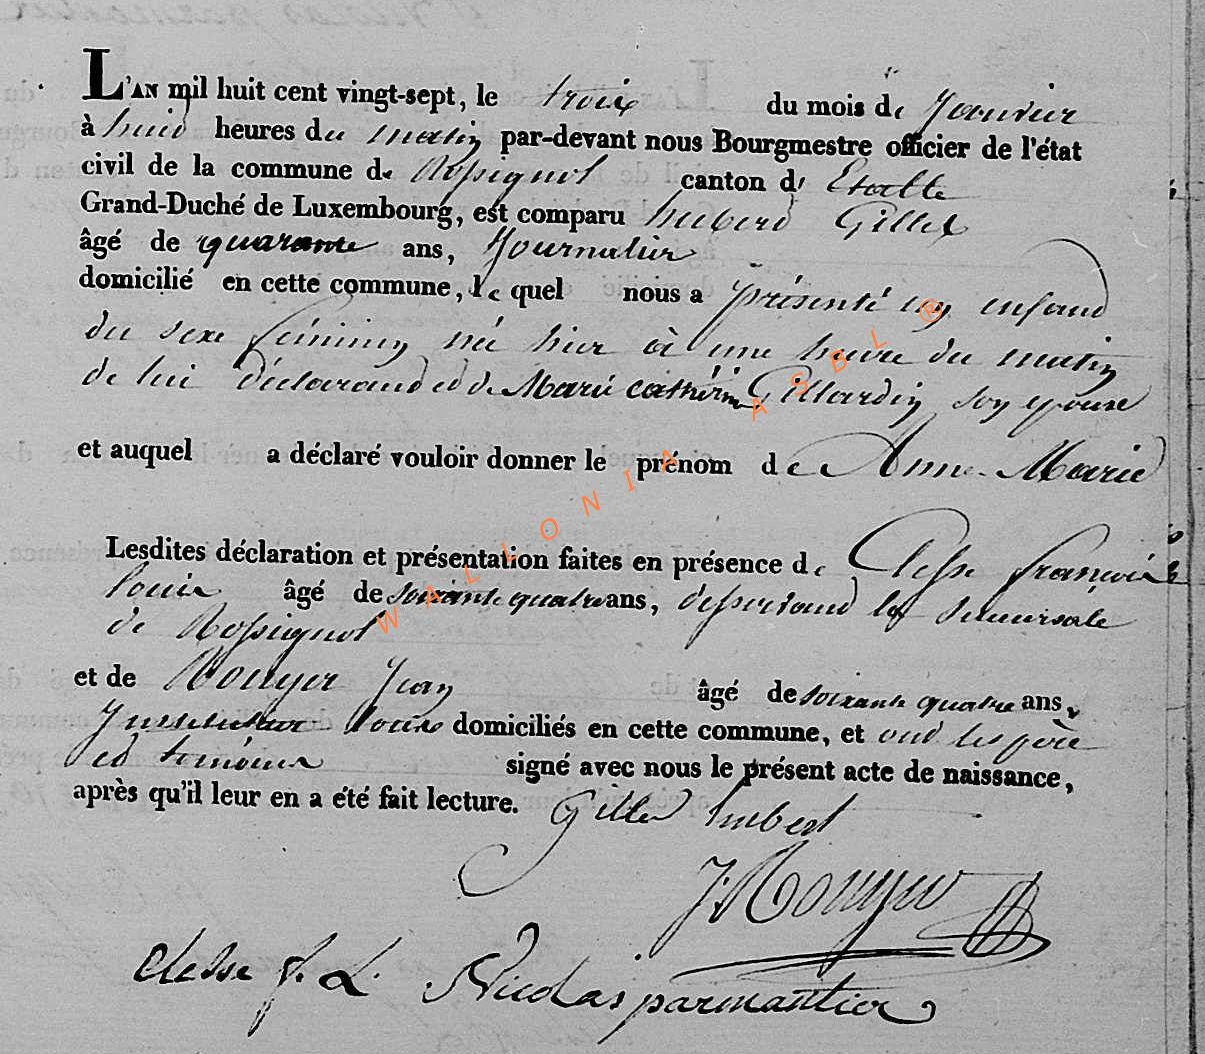 L'AN mil huit cent vingt-sept, le trois du mois de Janvier
à huit heures du matin par-devant nous Bourgmestre officier de l'état
civil de la commune de Rossignol canton d' Etalle
Grand-Duché de Luxembourg, est comparu hubert Gillet
âgé de quarante ans, Journalier
domicilié en cette commune, le quel nous a présenté un enfant
du sexe féminin né hier à une heure du matin
de lui déclarant et de Marie catherine Gillardin son epouse
et auquel a déclaré vouloir donner le prénom de Anne Marie
Lesdites déclaration et présentation faites en présence de Clesse francois
louis âgé de soixante quatre ans, desservant la succursale
de Rossignol
et de Rouyer Jean âgé de soixante quatre ans,
Instituteur tous domiciliés en cette commune, et ont les père
et temoins signé avec nous le présent acte de naissance,
après qu'il leur en a été fait lecture.
Gillet hubert
J. Rouyer
clesse f. L. Nicolas parmantier
WALLONIA ASBL ®